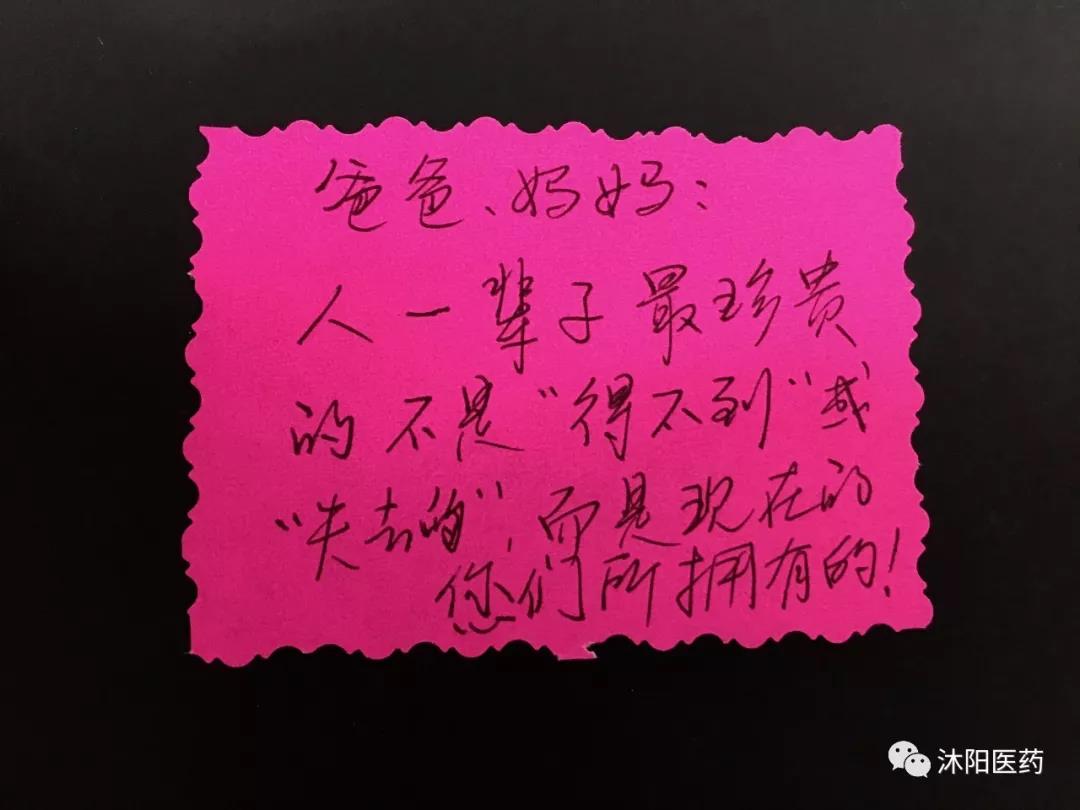 爸爸、妈妈:
人一辈子最珍贵
的不是“得不到”或
“失去的”,而是现在的
您们所拥有的!
沐阳医药